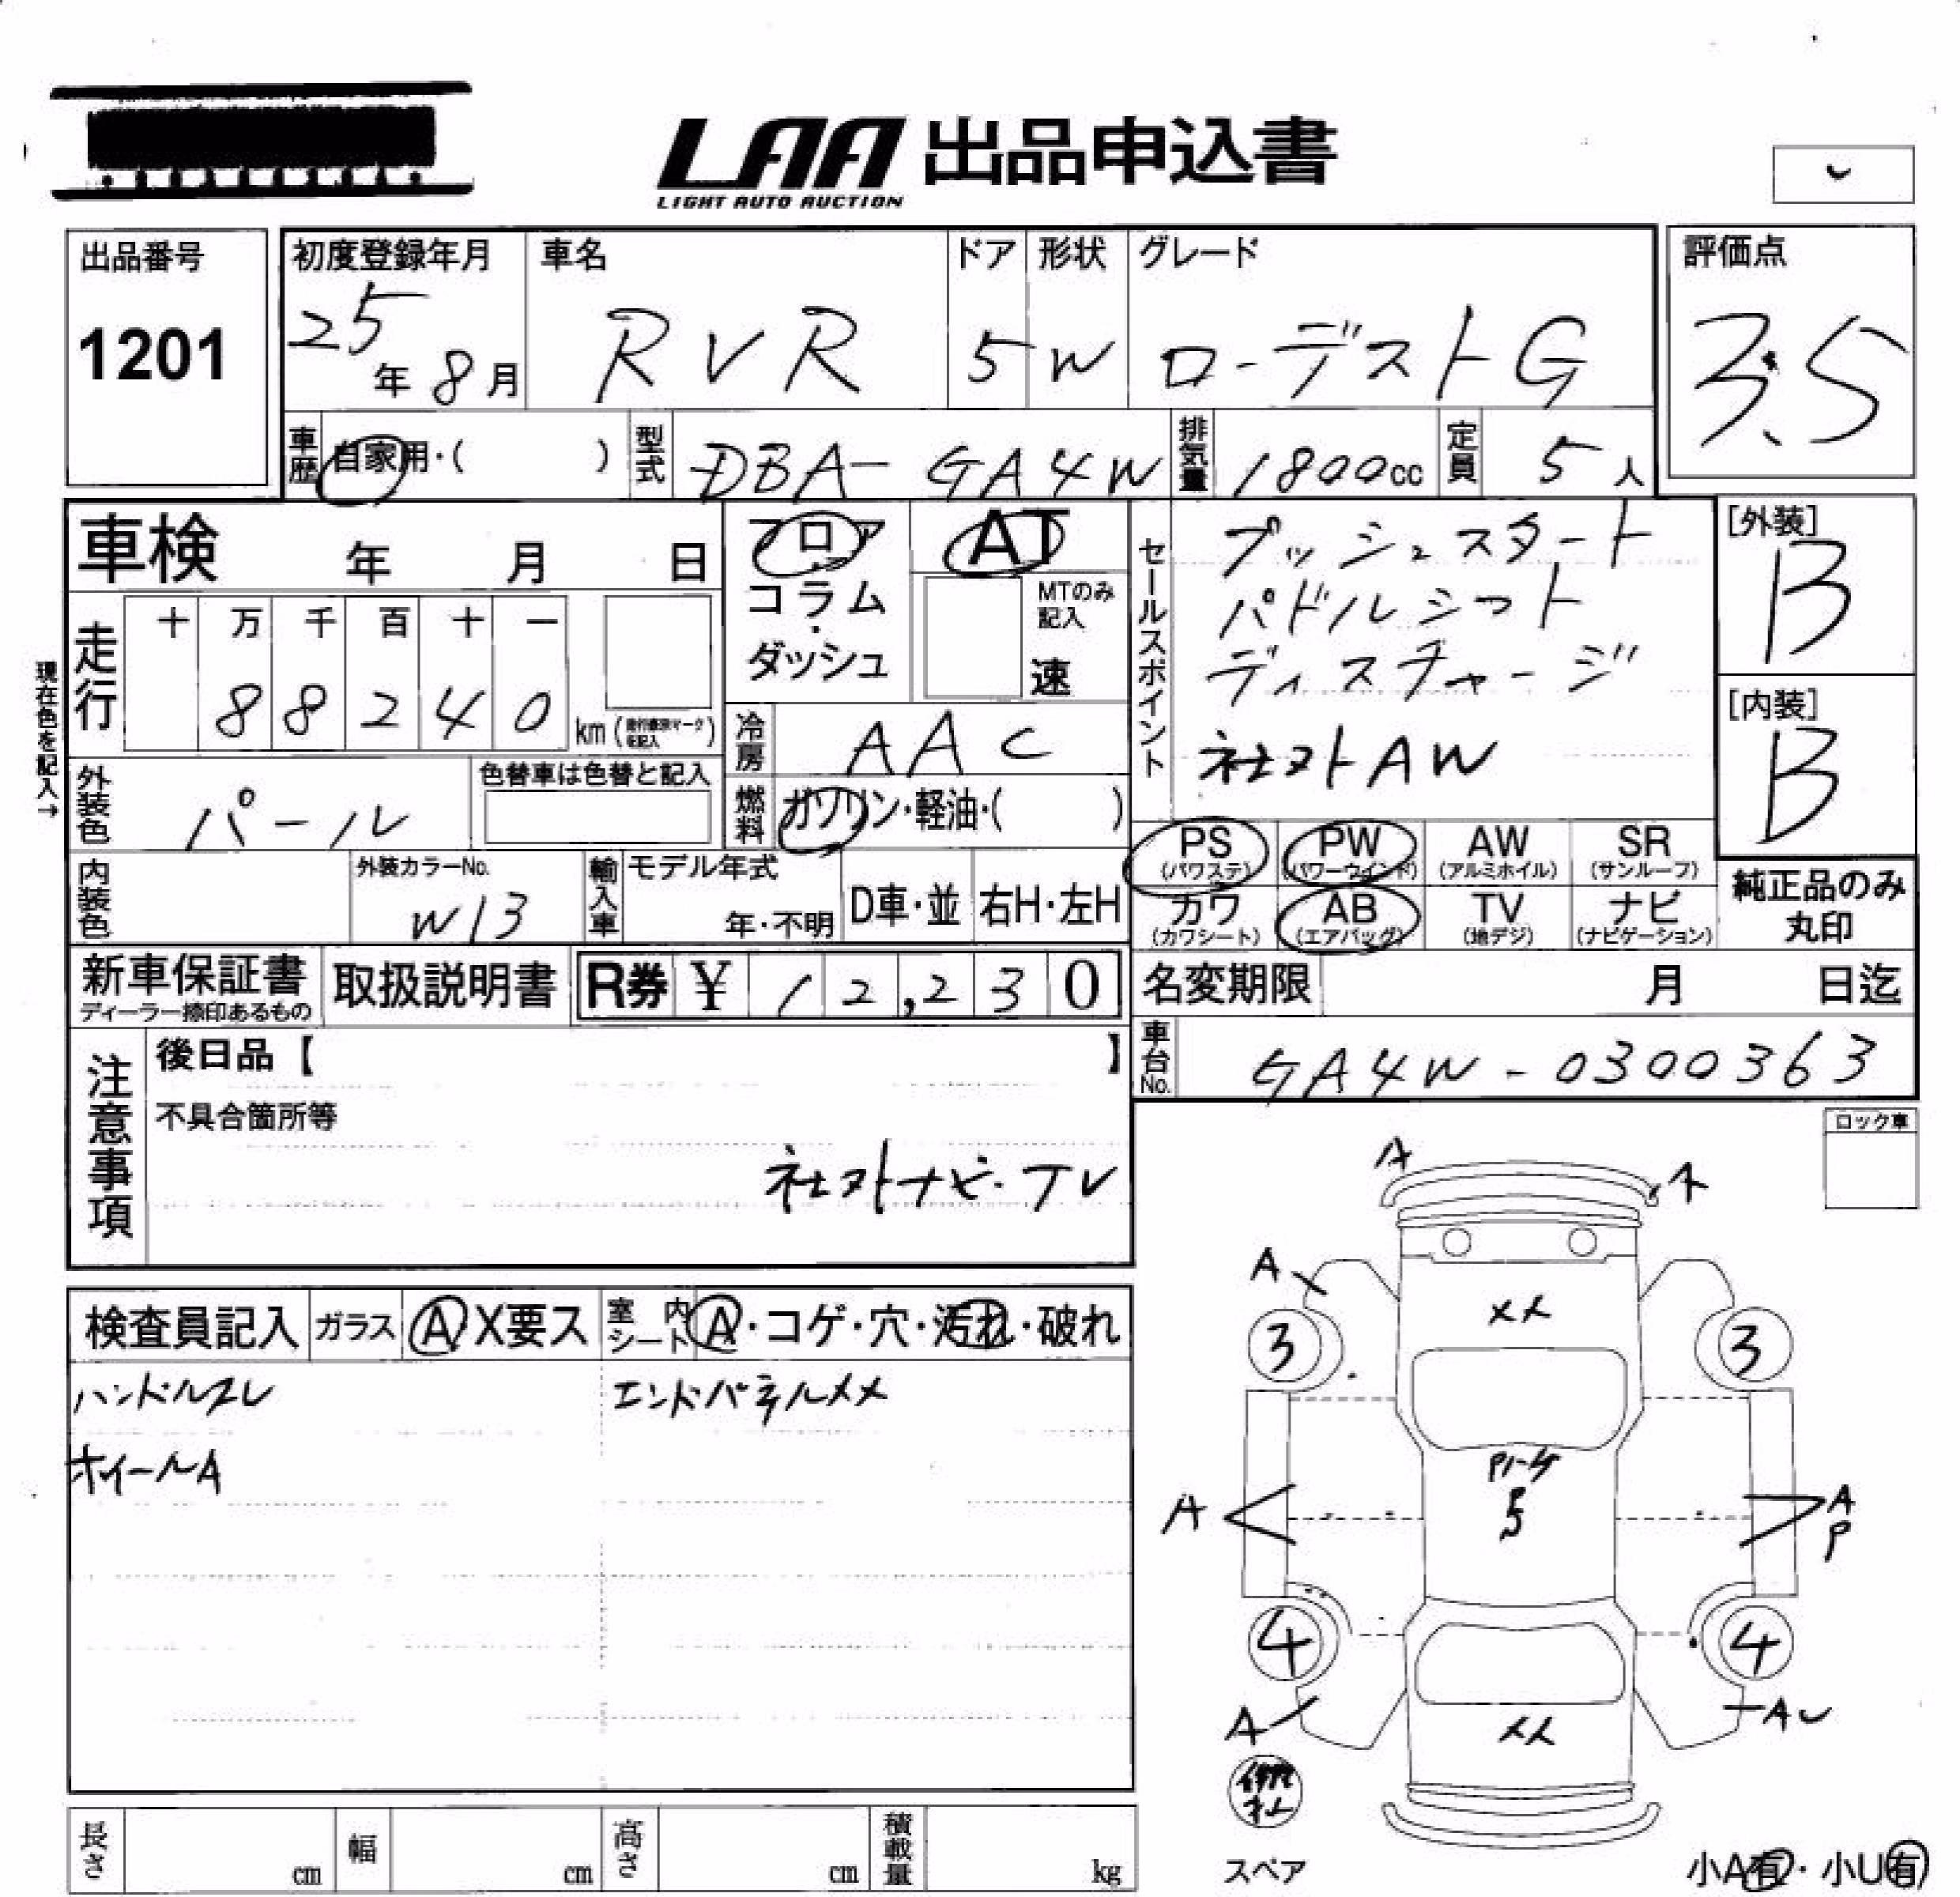 LAA 出品申込書
LIGHT AUTO AUCTION
出品番号
1201
初度登録年月
25年8月
車名
RVR
ドア
5
形状
W
グレード
ローデストG
評価点
3.5
車歴
自家用・( )
型式
DBA-GA4W
排気量
1800cc
定員
5人
車検 年 月 日
フロア
コラム
・
ダッシュ
AT
MTのみ
記入
速
セールスポイント
プッシュスタート
パドルシフト
ディスチャージ
社外AW
[外装]
B
[内装]
B
現在色を記入→
走行
十 万 千 百 十 一
8 8 2 4 0
km
冷房
AAC
外装色
パール
色替車は色替と記入
燃料
ガソリン・軽油・( )
PS
(パワステ)
PW
(パワーウインド)
AW
(アルミホイル)
SR
(サンルーフ)
カワ
(カワシート)
AB
(エアバッグ)
TV
(地デジ)
ナビ
(ナビゲーション)
純正品のみ
丸印
内装色
外装カラーNo.
W13
輸入車
モデル年式
年・不明
D車・並
右H・左H
新車保証書
ディーラー捺印あるもの
取扱説明書
R券 ¥ 12,230
名変期限 月 日迄
注意事項
後日品【 】
不具合箇所等
社外ナビ・TV
車台No.
GA4W-0300363
ロック車
検査員記入
ガラス
A X要ス
室内
シート
A・コゲ・穴・汚れ・破れ
ハンドルスレ
エンドパネルメメ
ホイールA
A
A
A
メメ
3
3
A
A
P
4
4
A
AU
メメ
スペア
小A有・小U有
長さ cm
幅 cm
高さ cm
積載量 kg